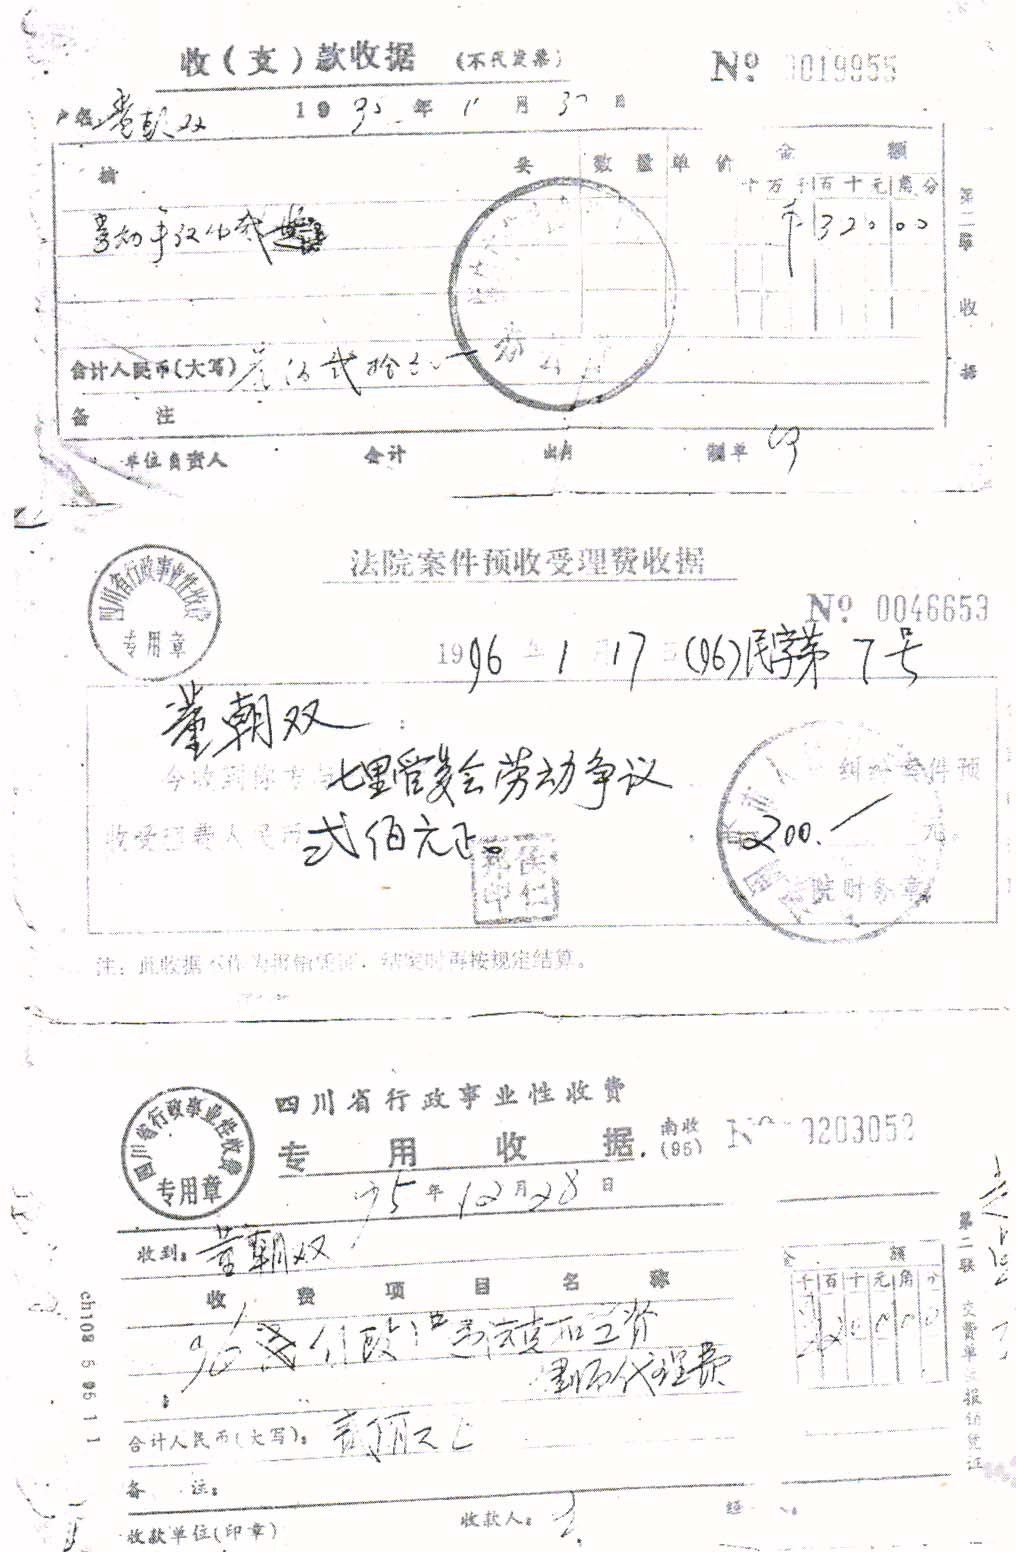 收(支)款收据 (不代发票) № 0019955
户名 董朝双 19 95 年 11 月 30 日
摘 要 数量 单价 金额
十万千百十元角分
劳动争议仲裁
¥32000
第二联 收据
合计人民币(大写) 叁佰贰拾元
备 注
单位负责人 会计 出纳 制单
四川省行政事业性收费
专用章
法院案件预收受理费收据
№ 0046653
1996 年 1 月 17 日 (96)民字第 7号
董朝双:
今收到你方与七里管委会劳动争议 纠纷案件预
收受理费人民币 弍佰元正。 200.— 元。
院财务章
注:此收据不作为报销凭证,结案时再按规定结算。
四川省行政事业性收费
专用章
四川省行政事业性收费
专用收据. 南收(95) № 0203053
95 年 12 月 28 日
收到: 董朝双
收费项目名称 金额
千百十元角分
代理费
合计人民币(大写):
备 注:
收款单位(印章) 收款人: 经
第二联 交费单位报销凭证